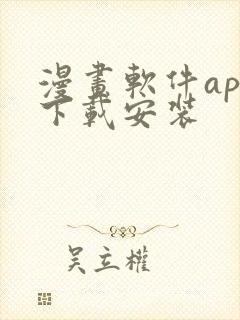 漫畫軟件ap
下載安裝
吴立權